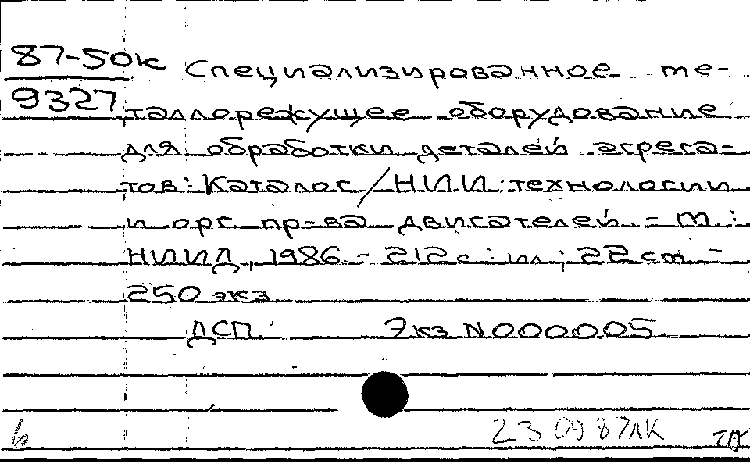 87-50к Специализированное ме-
9327 таллорежущее оборудование
для обработки деталей агрега-
тов: Каталог / НИИ технологии
и орг. пр-ва двигателей. - М.:
НИИД, 1986. - 212 с.: ил.; 22 см. -
250 экз.
ДСП. Экз N000005
23 09 87 ЛК